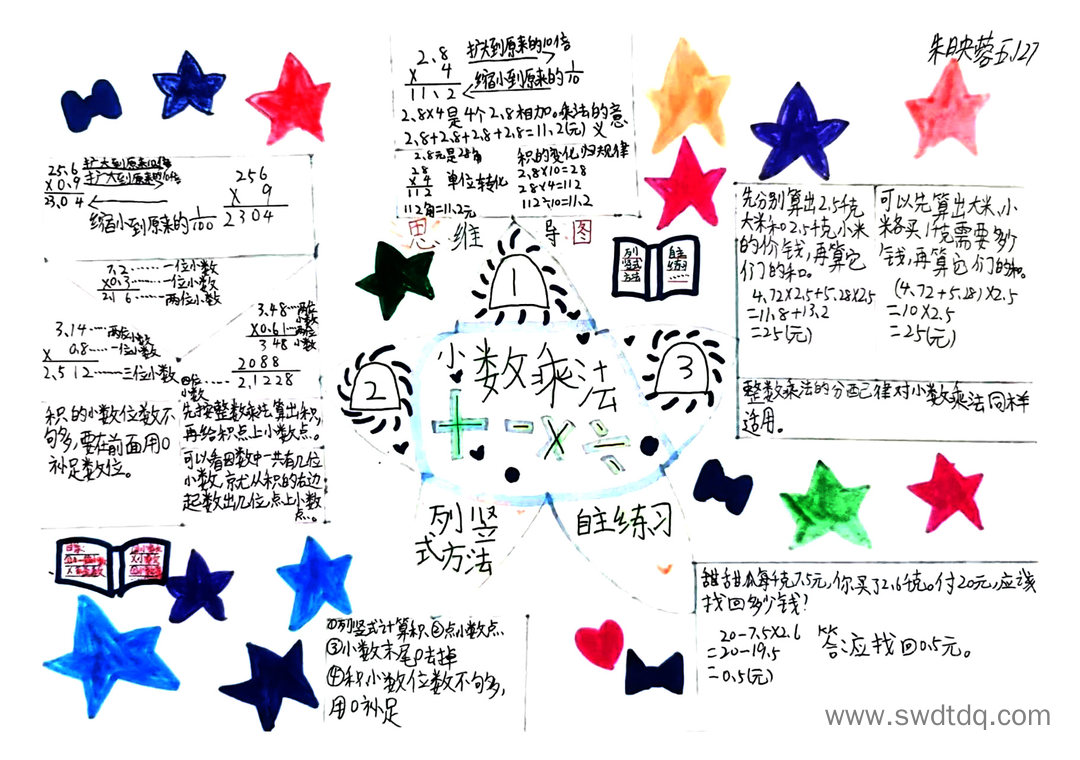 朱映蓉五J27
2.8 扩大到原来的10倍
× 4
11.2 缩小到原来的1/10
2.8×4是4个2.8相加。乘法的意
2.8+2.8+2.8+2.8=11.2(元) 义
2.8元是28角
28
× 4 单位转化
112
112角=11.2元
积的变化归规律
2.8×10=28
28×4=112
112÷10=11.2
25.6 扩大到原来10倍
×0.9 扩大到原来的10倍
23.04
缩小到原来的1/100
256
× 9
2304
7.2……一位小数
×0.3……一位小数
2.16……两位小数
3.14……两位小数
× 0.8……一位小数
2.512……三位小数
3.48…两位小数
×0.61…两位小数
348
2088
2.1228
四位小数
积的小数位数不
够多,要在前面用0
补足数位。
先按整数乘法算出积,
再给积点上小数点。
可以看因数中一共有几位
小数,就从积的右边
起数出几位,点上小数
点。
思维导图
1
2
3
小数乘法
+-×÷
列竖式方法
自主练习
先分别算出2.5千克
大米和2.5千克小米
的价钱,再算它
们的和。
4.72×2.5+5.28×2.5
=11.8+13.2
=25(元)
可以先算出大米、小
米各买1千克需要多少
钱,再算它们的和。
(4.72+5.28)×2.5
=10×2.5
=25(元)
整数乘法的分配律对小数乘法同样
适用。
列竖式
方法
自主
练习
①列竖式计算积②点小数点
③小数末尾0去掉
④积小数位数不够多,
用0补足
甜甜瓜每千克7.5元,你买了2.6千克。付20元,应该
找回多少钱?
20-7.5×2.6
=20-19.5
=0.5(元)
答:应找回0.5元。
www.swdtdq.com